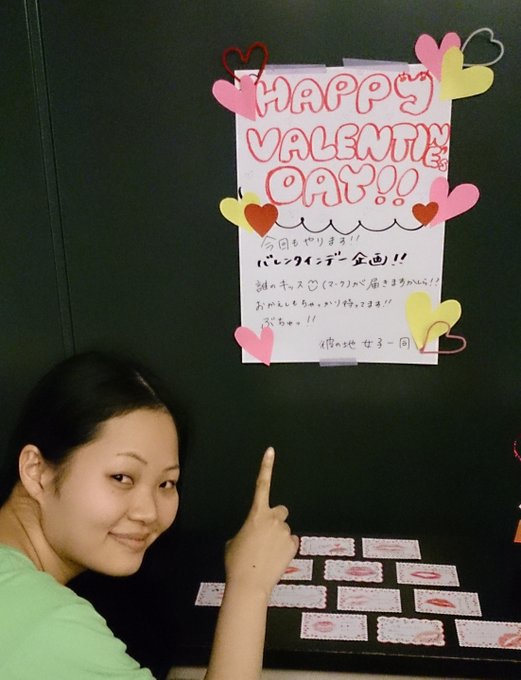 HAPPY
VALENTINE'S
DAY!!
今回もやります!!
バレンタインデー企画!!
誰のキッス(マーク)が届きますかしら!?
おかえしもちゃっかり待ってます!!
ぶちゅっ!!
彼の地 女子一同